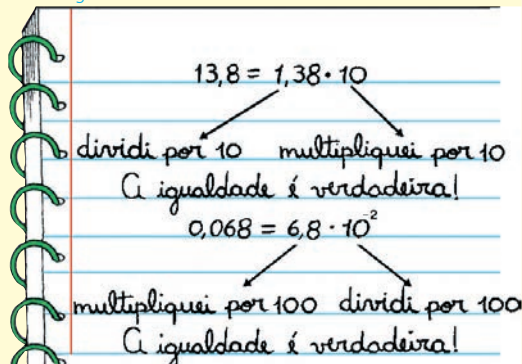 13,8 = 1,38 · 10
dividi por 10 multipliquei por 10
A igualdade é verdadeira!
0,068 = 6,8 · 10⁻²
multipliquei por 100 dividi por 100
A igualdade é verdadeira!